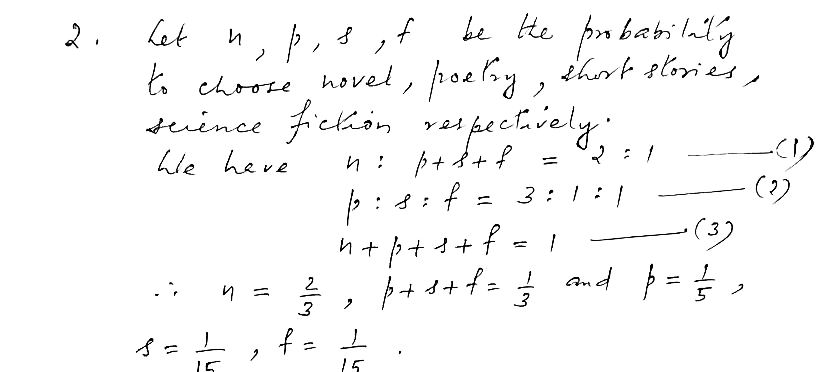 2. Let n, p, s, f be the probability
to choose novel, poetry, short stories,
science fiction respectively.
We have n : p+s+f = 2 : 1 ——(1)
p : s : f = 3 : 1 : 1 ——(2)
n + p + s + f = 1 ——(3)
∴ n = 2/3, p+s+f = 1/3 and p = 1/5,
s = 1/15, f = 1/15.